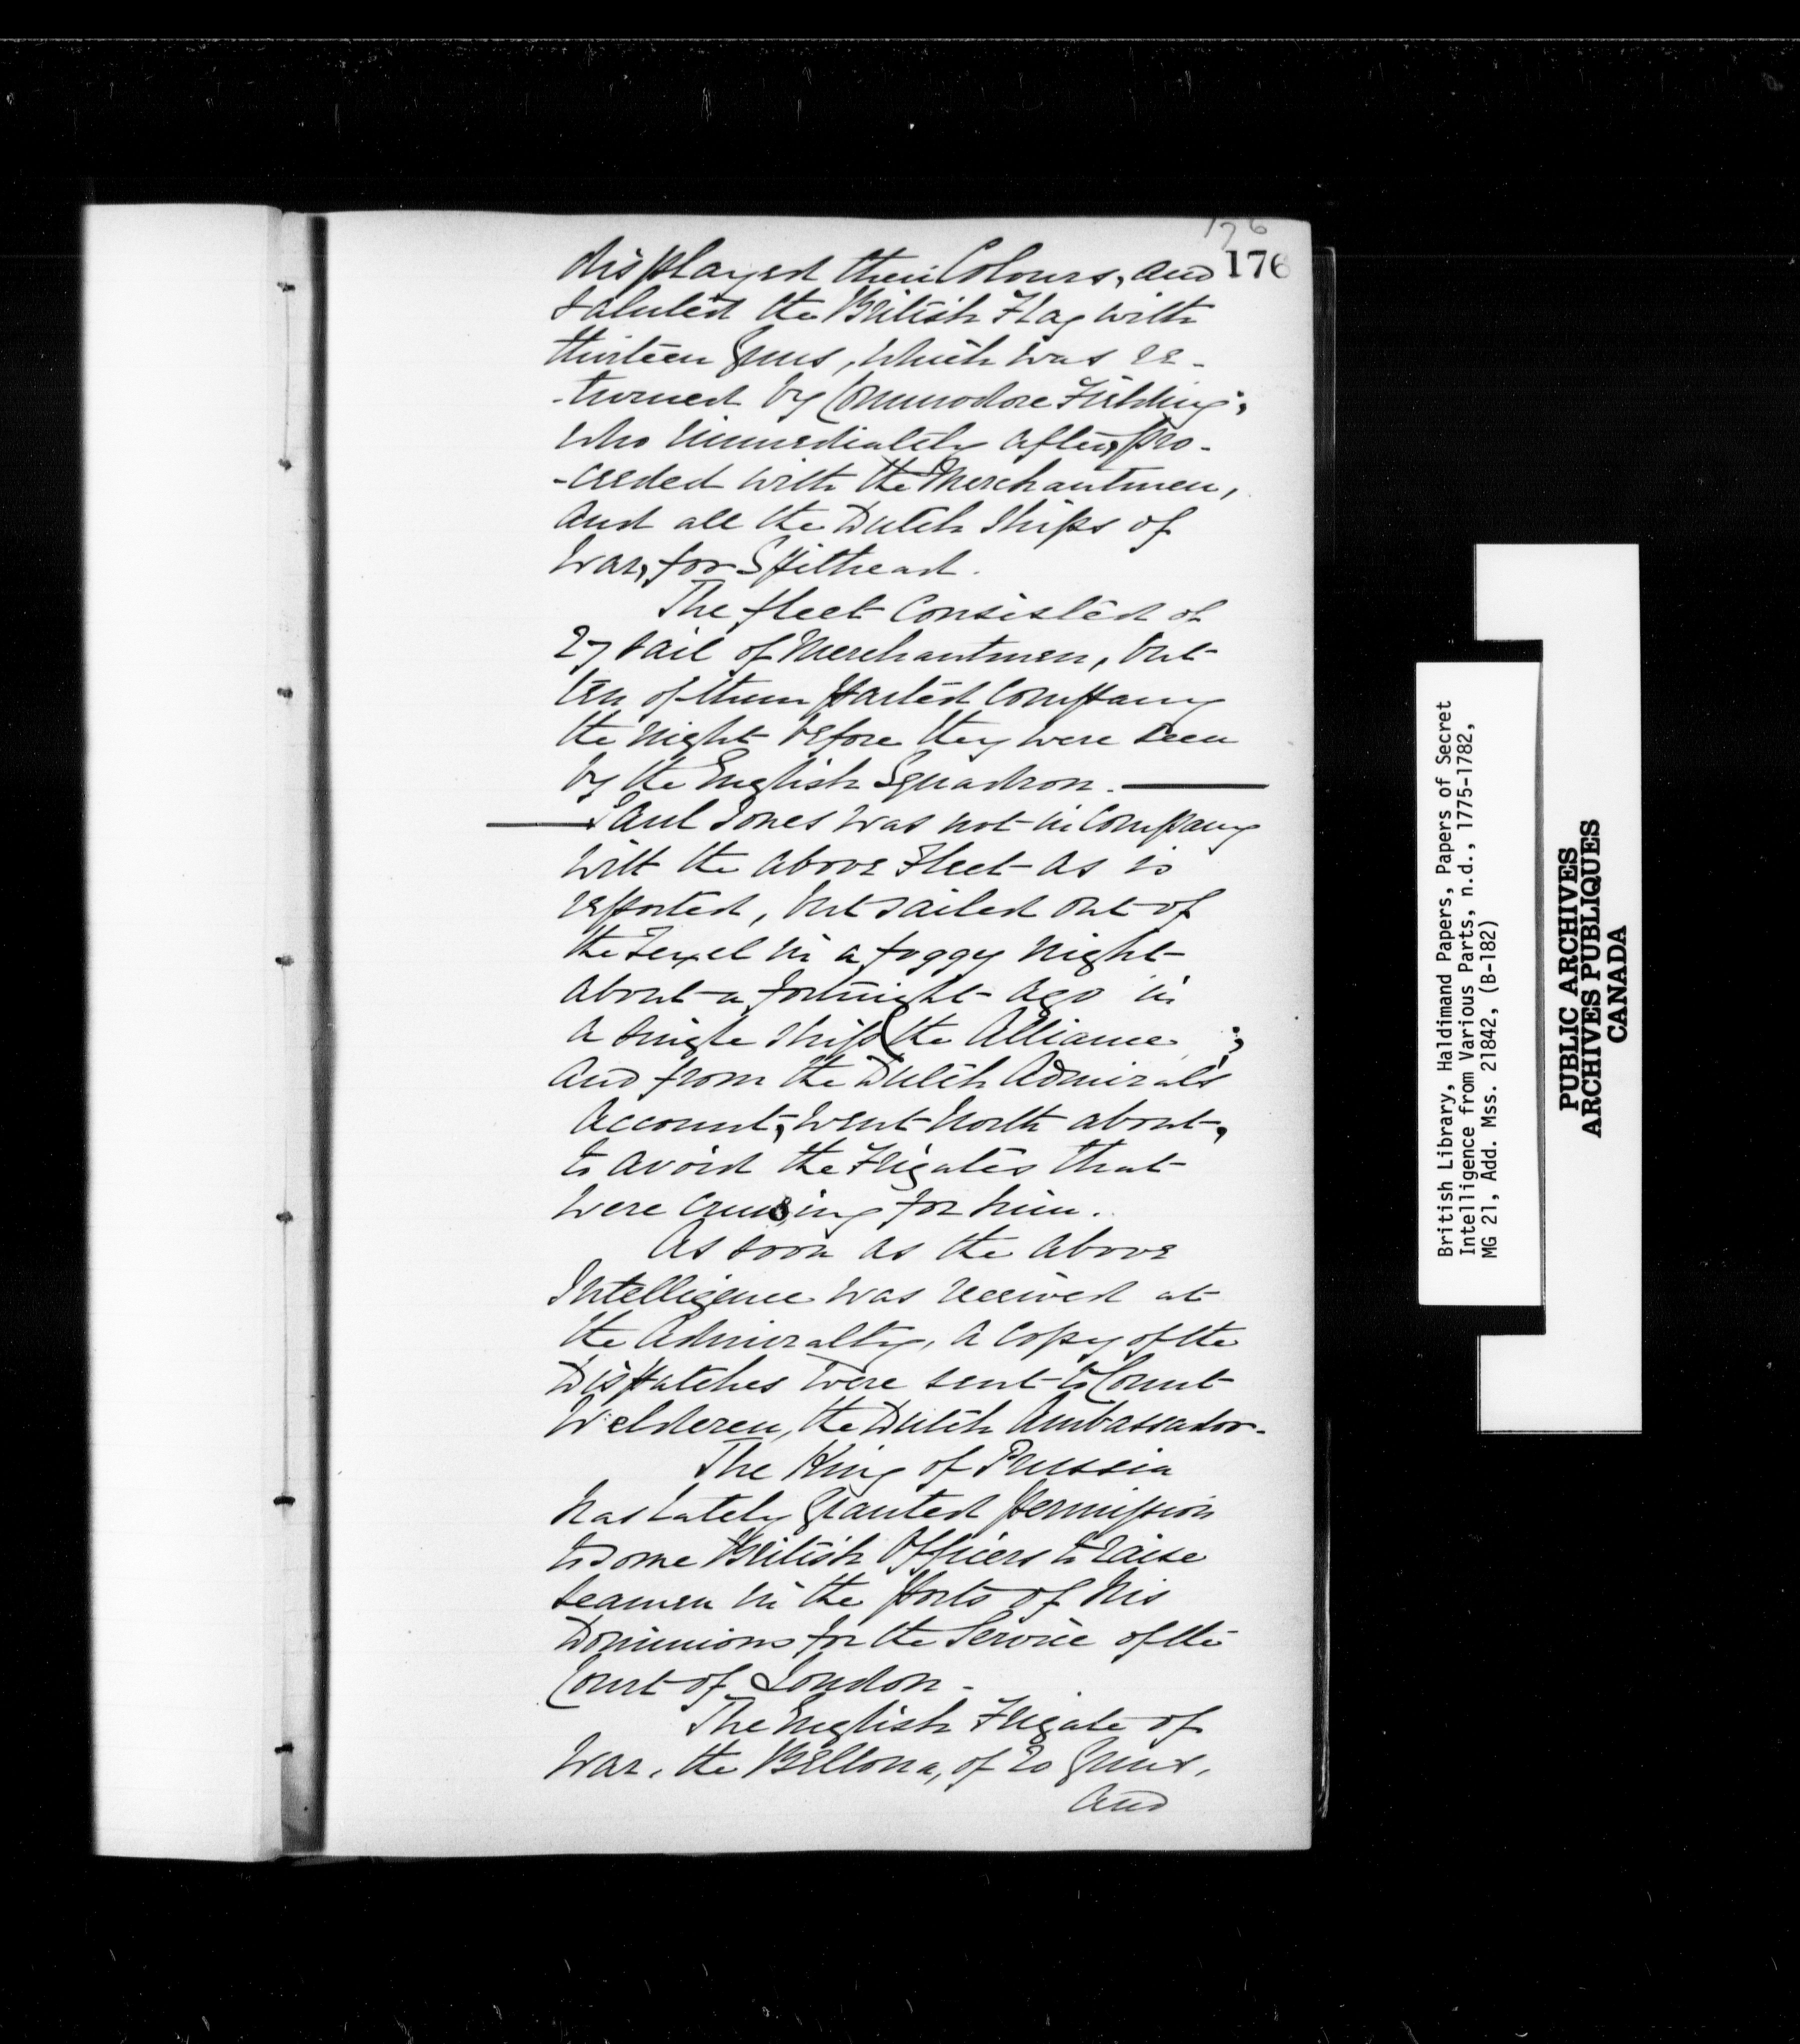 176
displayed their Colours, and 176
saluted the British Flag with
thirteen Guns, which was re-
-turned by Commodore Fielding,
who immediately after, pro-
-ceeded with the Merchantmen,
and all the Dutch Ships of
War, for Spithead.
The fleet Consisted of
27 sail of Merchantmen, but
ten of them parted Company
the night before they were seen
by the English Squadron. —
— Paul Jones was not in Company
with the above Fleet as is
reported, but sailed out of
the Texel in a foggy night
about a fortnight ago in
a single ship (the Alliance ;
and from the Dutch Admiral's
Account, went North about,
to avoid the Frigates that
were cruising for him.
As soon as the above
Intelligence was received at
the Admiralty, a copy of the
Dispatches were sent to Count
Welderen, the Dutch Ambassador.
The King of Prussia
has lately Granted permission
to some British Officers to raise
seamen in the ports of his
Dominions for the Service of the
Court of London.
The English Frigate of
War, the Bellona, of 20 Guns,
and
British Library, Haldimand Papers, Papers of Secret
Intelligence from Various Parts, n.d., 1775-1782,
MG 21, Add. Mss. 21842, (B-182)
PUBLIC ARCHIVES
ARCHIVES PUBLIQUES
CANADA